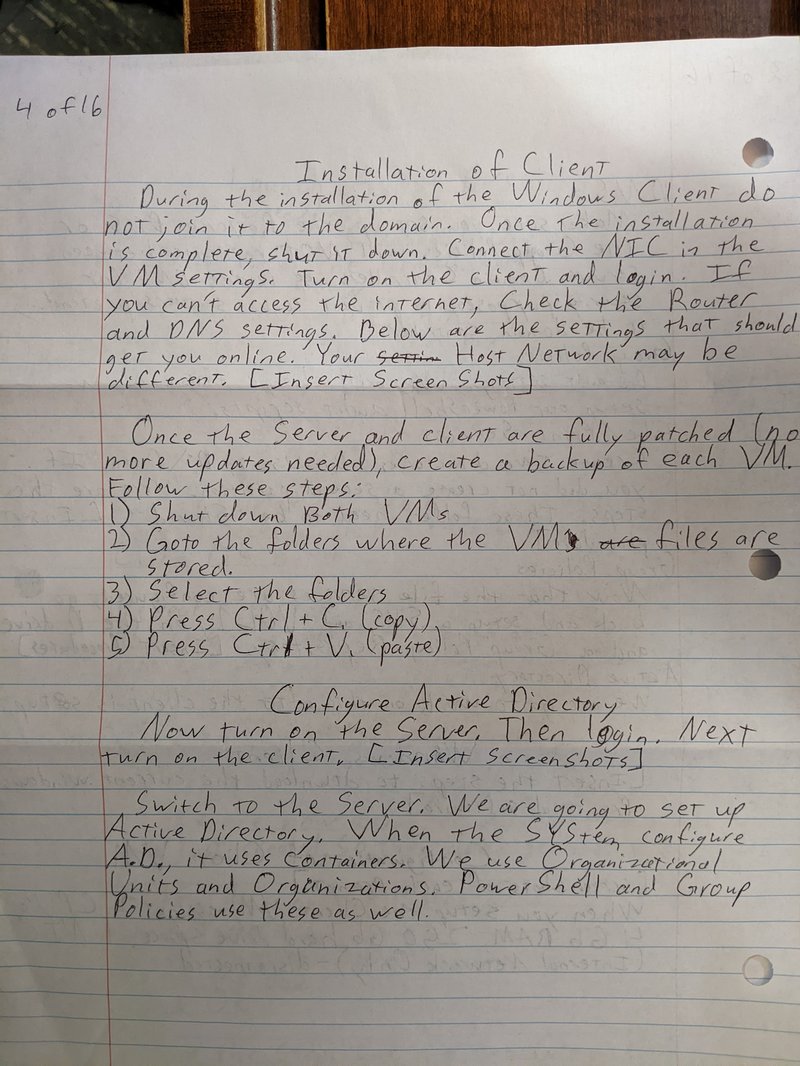 4 of 16
Installation of Client
During the installation of the Windows Client do
not join it to the domain. Once the installation
is complete, shut it down. Connect the NIC in the
VM settings. Turn on the client and login. If
you can't access the internet, Check the Router
and DNS settings. Below are the settings that should
get you online. Your Host Network may be
different. [Insert Screen Shots]
Once the Server and client are fully patched (no
more updates needed), create a backup of each VM.
Follow these steps:
1) Shut down Both VMs
2) Goto the folders where the VM are files are
stored.
3) Select the folders
4) Press Ctrl + C. (copy)
5) Press Ctrl + V. (paste)
Configure Active Directory
Now turn on the Server. Then login. Next
turn on the client. [Insert Screenshots]
Switch to the Server. We are going to set up
Active Directory. When the System configure
A.D., it uses Containers. We use Organizational
Units and Organizations. PowerShell and Group
Policies use these as well.